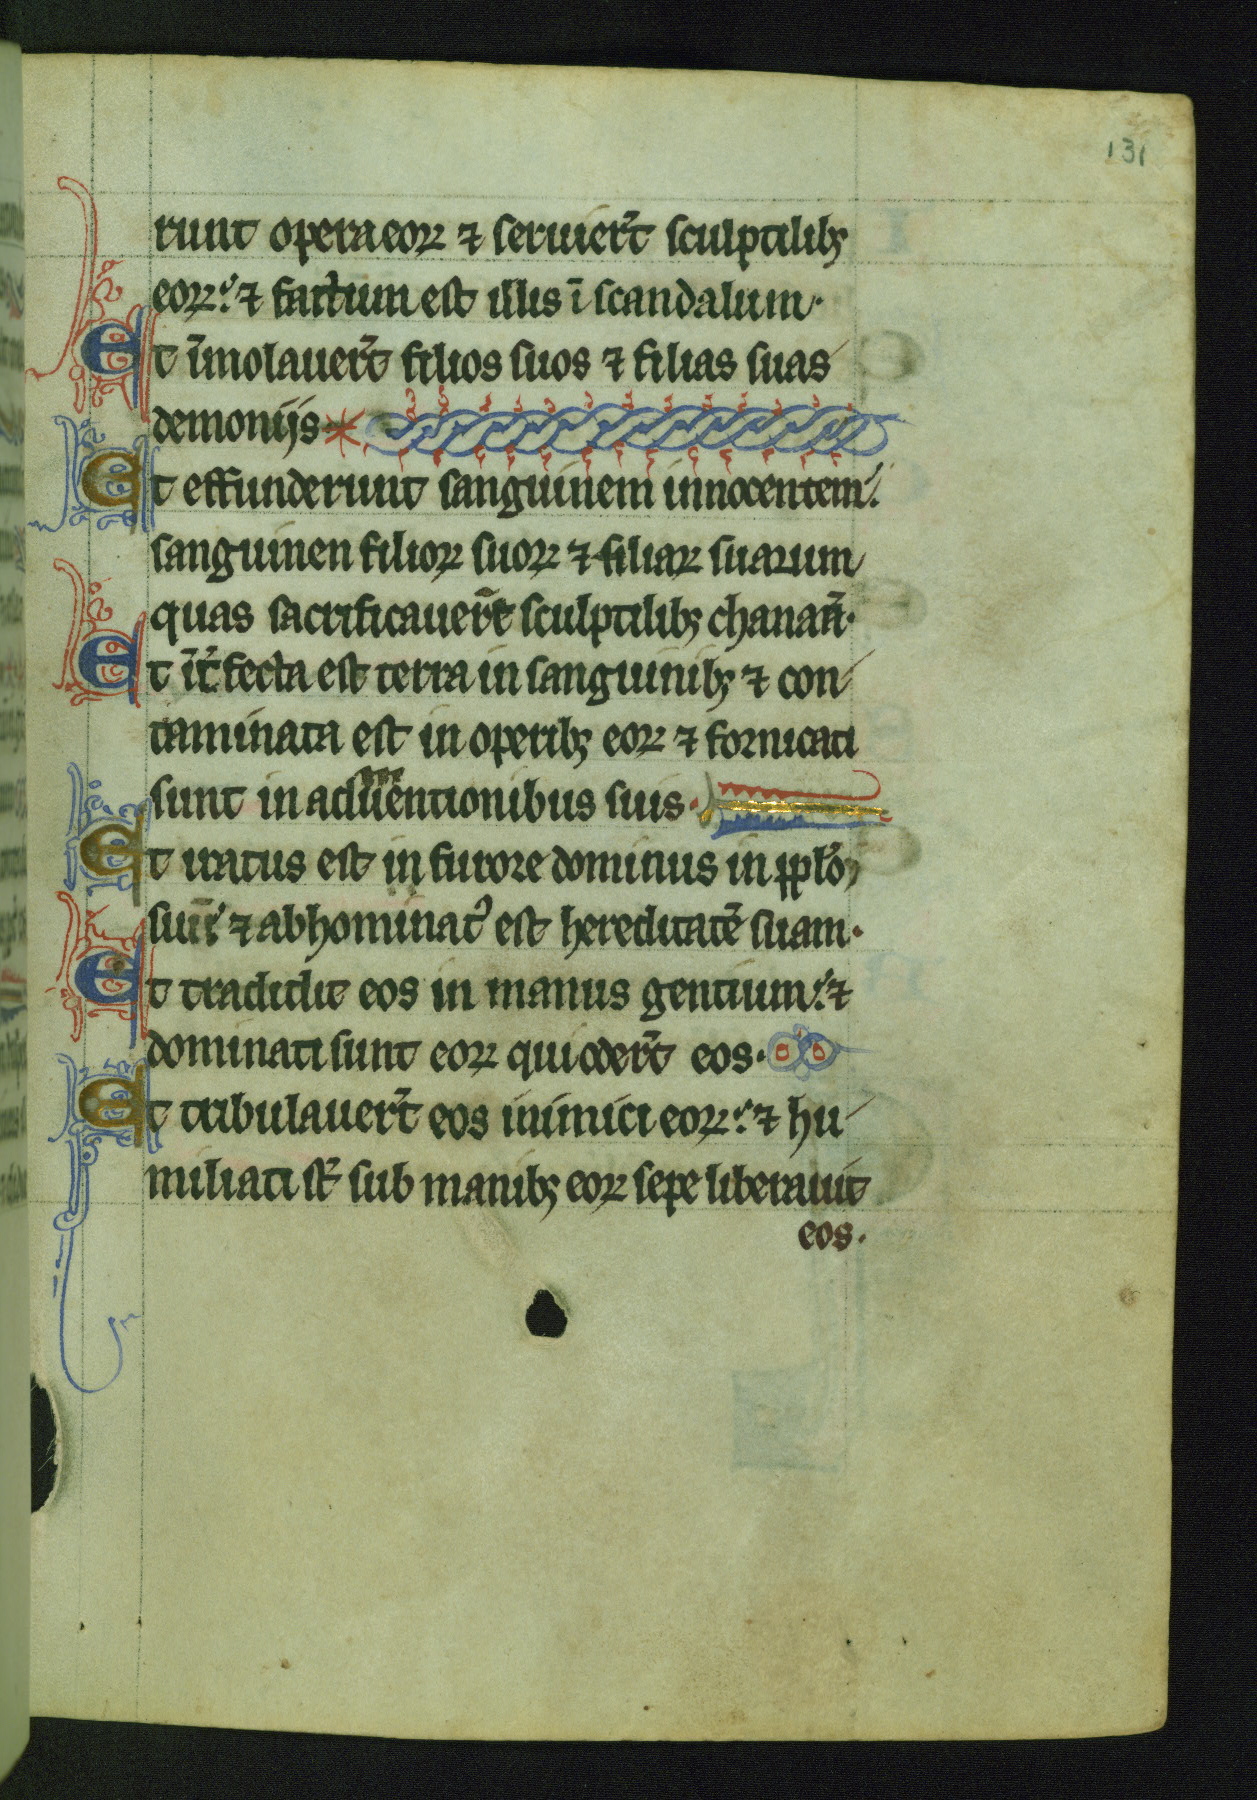 131
runt opera eoꝝ ⁊ seruier̄t sculptilibꝫ
eoꝝ: ⁊ factum est illis ī scandalum.
Et īmolauer̄t filios suos ⁊ filias suas
demonijs
Et effunderunt sanguinem innocentem:
sanguinen filioꝝ suoꝝ ⁊ filiaꝝ suarum
quas sacrificauer̄t sculptilibꝫ chanaā.
Et īt̄fecta est terra in sanguinibꝫ ⁊ con
taminata est in operibꝫ eoꝝ ⁊ fornicati
sunt in aduentionibus suis.
Et iratus est in furore dominus in
⁊ abhominat᾽ est hereditatē suam.
Et tradidit eos in manus gentium: ⁊
dominati sunt eoꝝ qui oder̄t eos.
Et tribulauer̄t eos inimici eoꝝ: ⁊ hu
miliati sт̄ sub manibꝫ eoꝝ sepe liberauit
eos.